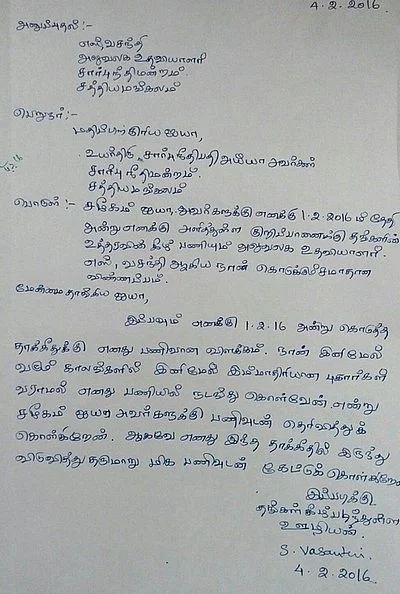 4.2.2016.
அனுப்புதல் :-
எஸ். வசந்தி
அலுவலக உதவியாளர்
சார்பு நீதிமன்றம்
சத்தியமங்கலம்
பெறுநர் :-
மதிப்பிற்குரிய ஐயா,
உயர்திரு சார்பு நீதிபதி அய்யா அவர்கள்
சார்பு நீதிமன்றம்.
சத்தியமங்கலம்
பொருள் :- சமூகம் ஐயா அவர்களுக்கு எனக்கு 1.2.2016 ம் தேதி
அன்று எனக்கு அளித்துள்ள குறிப்பாணைக்கு தங்களின்
உத்தரவின் கீழ் பணியும் அலுவலக உதவியாளர்.
எஸ், வசந்தி ஆகிய நான் கொடுக்கும்
விண்ணப்பம்.
மேன்மை தாங்கிய ஐயா,
இப்பவும் எனக்கு 1.2.16 அன்று கொடுத்த
தாக்கீதுக்கு எனது பணிவான விளக்கம். நான் இனிமேல்
வரும் காலங்களில் இனிமேல் இம்மாதிரியான புகார்கள்
வராமல் எனது பணியில் நடந்து கொள்வேன் என்று
சமூகம் ஐயா அவர்களுக்கு பணிவுடன் தெரிவித்துக்
கொள்கிறேன். ஆகவே எனது இந்த தாக்கீதில் இருந்து
விடுவித்து தருமாறு மிக பணிவுடன் கேட்டுக் கொள்கிறேன்
இப்படிக்கு
தங்கள் கீழ்படிந்துள்ள
ஊழியன்.
S. Vasanthi.
4.2.2016.